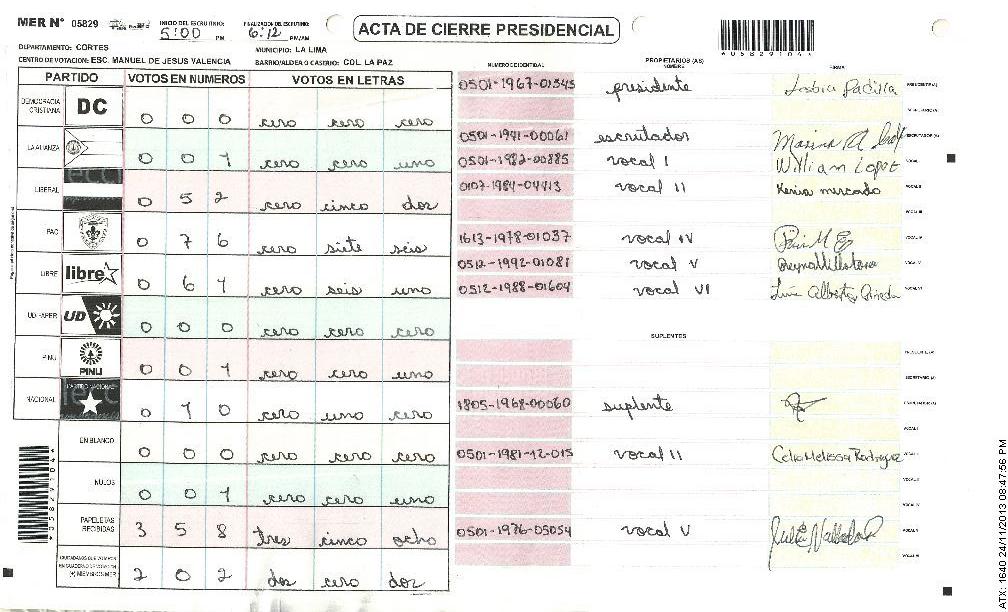 MER N° 05829
INICIO DEL ESCRUTINIO: 5:00 PM
FINALIZACION DEL ESCRUTINIO: 6:12 PM/AM
ACTA DE CIERRE PRESIDENCIAL
*05829104*
DEPARTAMENTO: CORTES
MUNICIPIO: LA LIMA
CENTRO DE VOTACION: ESC. MANUEL DE JESUS VALENCIA
BARRIO/ALDEA O CASERIO: COL. LA PAZ
PARTIDO VOTOS EN NUMEROS VOTOS EN LETRAS
DEMOCRACIA CRISTIANA DC 0 0 0 cero cero cero
LA ALIANZA 0 0 1 cero cero uno
LIBERAL 0 5 2 cero cinco dos
PAC 0 7 6 cero siete seis
LIBRE libre 0 6 1 cero seis uno
UD FAPER UD 0 0 0 cero cero cero
PINU PINU 0 0 1 cero cero uno
NACIONAL PARTIDO NACIONAL 0 1 0 cero uno cero
EN BLANCO 0 0 0 cero cero cero
NULOS 0 0 1 cero cero uno
PAPELETAS RECIBIDAS 3 5 8 tres cinco ocho
CIUDADANOS QUE VOTARON EN CUADERNO DE VOTACION (+) MIEMBROS MER 2 0 2 dos cero dos
NUMERO IDENTIDAD
PROPIETARIOS (AS)
NOMBRE
FIRMA
0501-1967-01345 presidente Padilla PRESIDENTE (A)
SECRETARIO (A)
0501-1941-00061 escrutador ESCRUTADOR (A)
0501-1982-00885 vocal I William Lopez VOCAL I
0107-1984-04413 vocal II Kenia mercado VOCAL II
VOCAL III
1613-1978-01037 vocal IV VOCAL IV
0512-1992-01081 vocal V VOCAL V
0512-1988-01604 vocal VI Luis Alberto Pineda VOCAL VI
SUPLENTES
PRESIDENTE (A)
SECRETARIO (A)
1805-1968-00060 suplente ESCRUTADOR (A)
VOCAL I
0501-1981-12-015 vocal II Melissa Rodriguez
VOCAL III
VOCAL IV
0501-1976-05054 vocal V VOCAL V
VOCAL VI
*05829104*
ATX: 1640 24/11/2013 08:47:56 PM